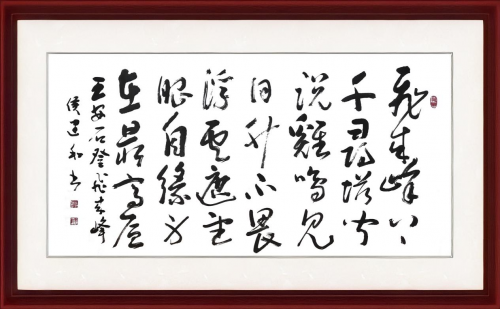 飛来峰上
千尋塔闻
説雞鳴见
日升不畏
浮雲遮望
眼自緣身
在最高层
王安石登飛来峰
侯和书